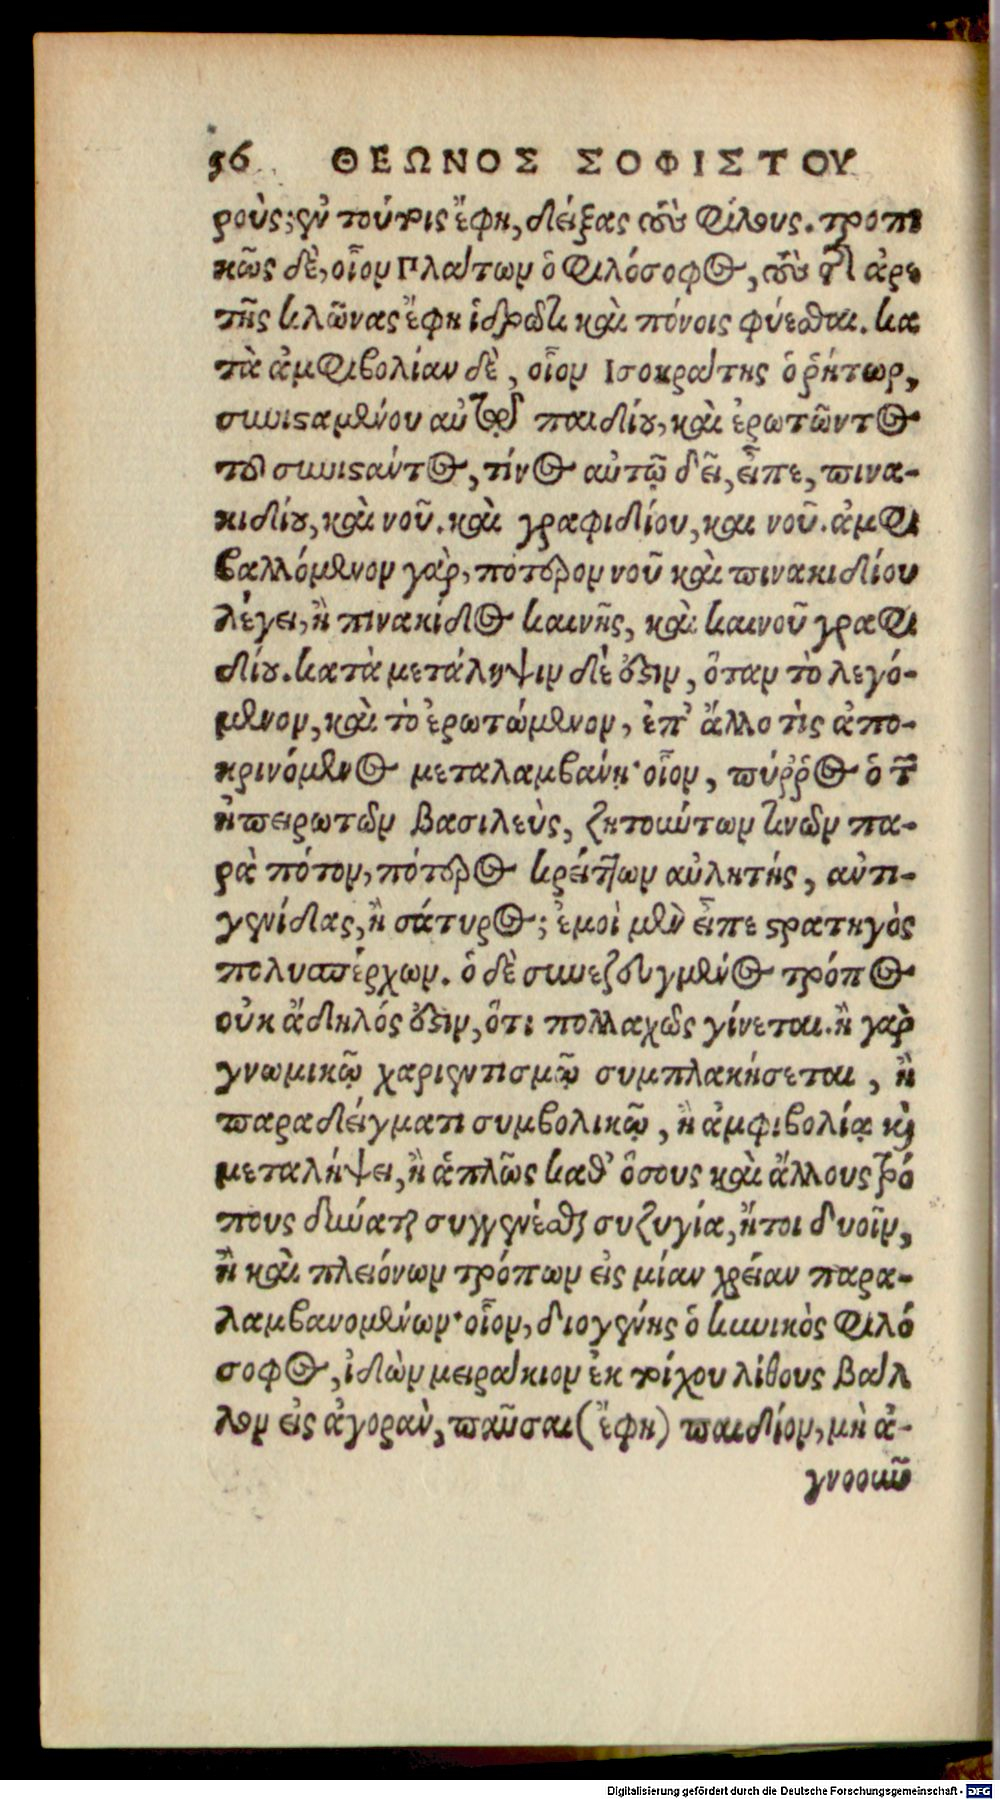 56 ΘΕΩΝΟΣ ΣΟΦΙΣΤΟΥ
ροὺς; ἐν τούτοις ἔφη, δείξας τοὺς φίλους. τροπι
κῶς δὲ, οἷον Πλάτων ὁ φιλόσοφος, τοὺς τῆς ἀρε
τῆς κλῶνας ἔφη ἱδρῶτι καὶ πόνοις φύεσθαι. κα
τὰ ἀμφιβολίαν δὲ, οἷον Ισοκράτης ὁ ῥήτωρ,
συνισαμένου αὐτῷ παιδίου, καὶ ἐρωτῶντος
τοῦ συνισάντος, τίνος αὐτῷ δεῖ, εἶπε, πινα-
κιδίου, καὶ νοῦ. καὶ γραφιδίου, και νοῦ. ἀμφι
βαλλόμενον γὰρ, πότερον νοῦ καὶ πινακιδίου
λέγει, ἢ πινακίδος καινῆς, καὶ καινοῦ γραφι
δίου. κατὰ μετάληψιν δὲ ὅξιν, ὅταν τὸ λεγό-
μενον, καὶ τὸ ἐρωτώμενον, ἐπ' ἄλλο τὶς ἀπο-
κρινόμενος μεταλαμβάνῃ· οἷον, πύῤῥος ὁ τῶν
ἠπειρωτῶν βασιλεὺς, ζητούντων τινῶν πα-
ρὰ πότον, πότερος κρείττων αὐλητής, αντι-
γενίδας, ἢ σάτυρος; ἐμοὶ μὲν εἶπε στρατηγὸς
πολυσπέρχων. ὁ δὲ συνεζευγμένος τρόπος
οὐκ ἄδηλός ἐστιν, ὅτι πολλαχῶς γίνεται. ἢ γὰρ
γνωμικῷ χαριεντισμῷ συμπλακήσεται, ἢ
παραδείγματι συμβολικῷ, ἢ ἀμφιβολίᾳ καὶ
μεταλήψει, ἢ ἁπλῶς καθ' ὅσους καὶ ἄλλους τρό
πους δύναται συγγενέσθαι συζυγία, ἤτοι δυοῖν,
ἢ καὶ πλειόνων τρόπων εἰς μίαν χρείαν παρα-
λαμβανομένων· οἷον, διογένης ὁ κυνικὸς φιλό
σοφος, ἰδὼν μειράκιον ἐκ τρίχου λίθους βάλ
λον εἰς ἀγορὰν, παῦσαι (ἔφη) παιδίον, μὴ ἀ-
γνοοῦν
Digitalisierung gefördert durch die Deutsche Forschungsgemeinschaft - DFG